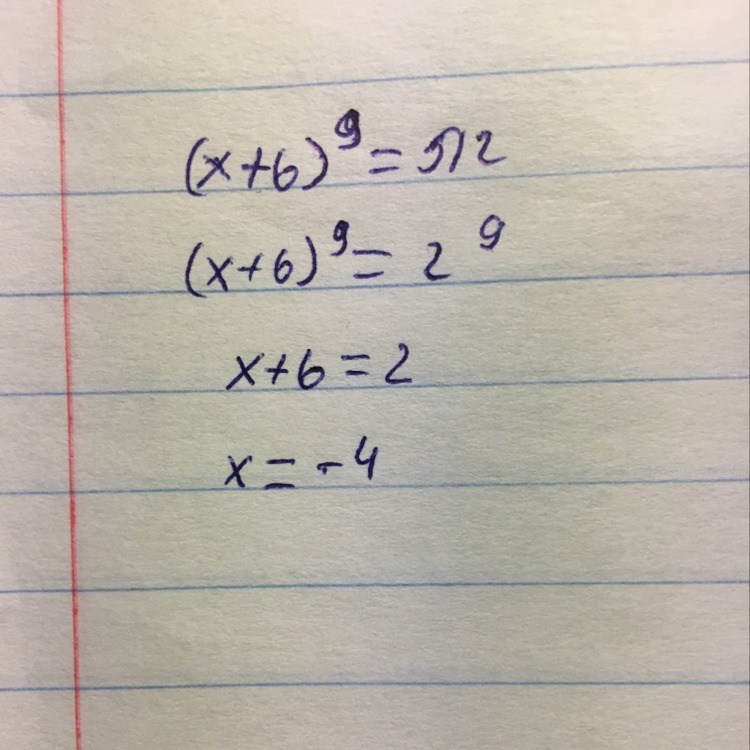 (x+6)⁹=512
(x+6)⁹=2⁹
x+6=2
x=-4